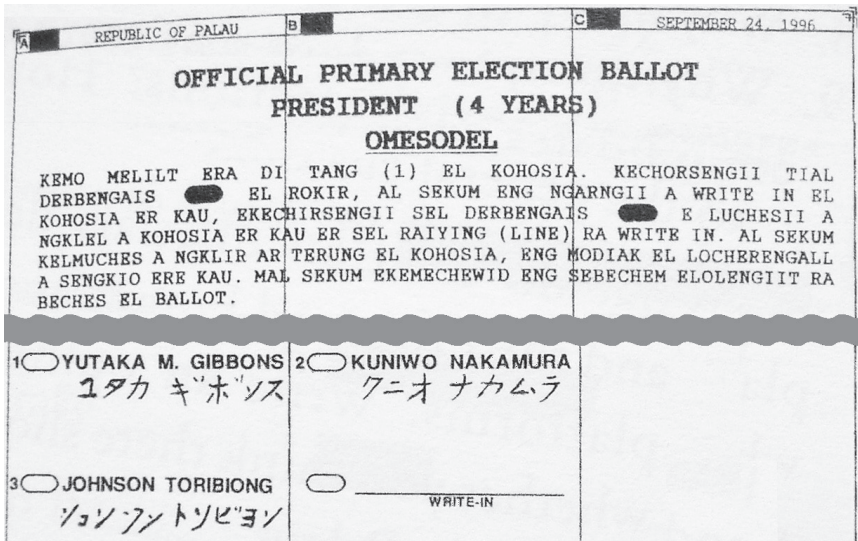 A REPUBLIC OF PALAU B C SEPTEMBER 24, 1996
OFFICIAL PRIMARY ELECTION BALLOT
PRESIDENT (4 YEARS)
OMESODEL
KEMO MELILT ERA DI TANG (1) EL KOHOSIA. KECHORSENGII TIAL
DERBENGAIS EL ROKIR, AL SEKUM ENG NGARNGII A WRITE IN EL
KOHOSIA ER KAU, EKECHIRSENGII SEL DERBENGAIS E LUCHESII A
NGKLEL A KOHOSIA ER KAU ER SEL RAIYING (LINE) RA WRITE IN. AL SEKUM
KELMUCHES A NGKLIR AR TERUNG EL KOHOSIA, ENG MODIAK EL LOCHERENGALL
A SENGKIO ERE KAU. MAL SEKUM EKEMECHEWID ENG SEBECHEM ELOLENGIIT RA
BECHES EL BALLOT.
1 YUTAKA M. GIBBONS 2 KUNIWO NAKAMURA
ユタカ ギボンス クニオ ナカムラ
3 JOHNSON TORIBIONG
WRITE-IN
ジョンソン トリビヨン